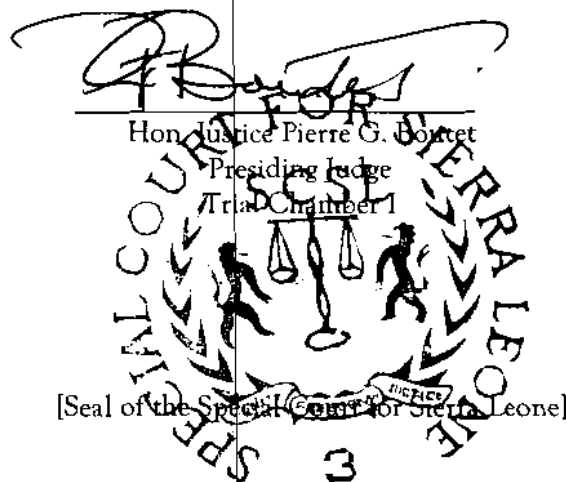 Hon. Justice Pierre G. Boutet
Presiding Judge
Trial Chamber I
SPECIAL COURT FOR SIERRA LEONE
SCSL
JUSTICE
[Seal of the Special Court for Sierra Leone]
3